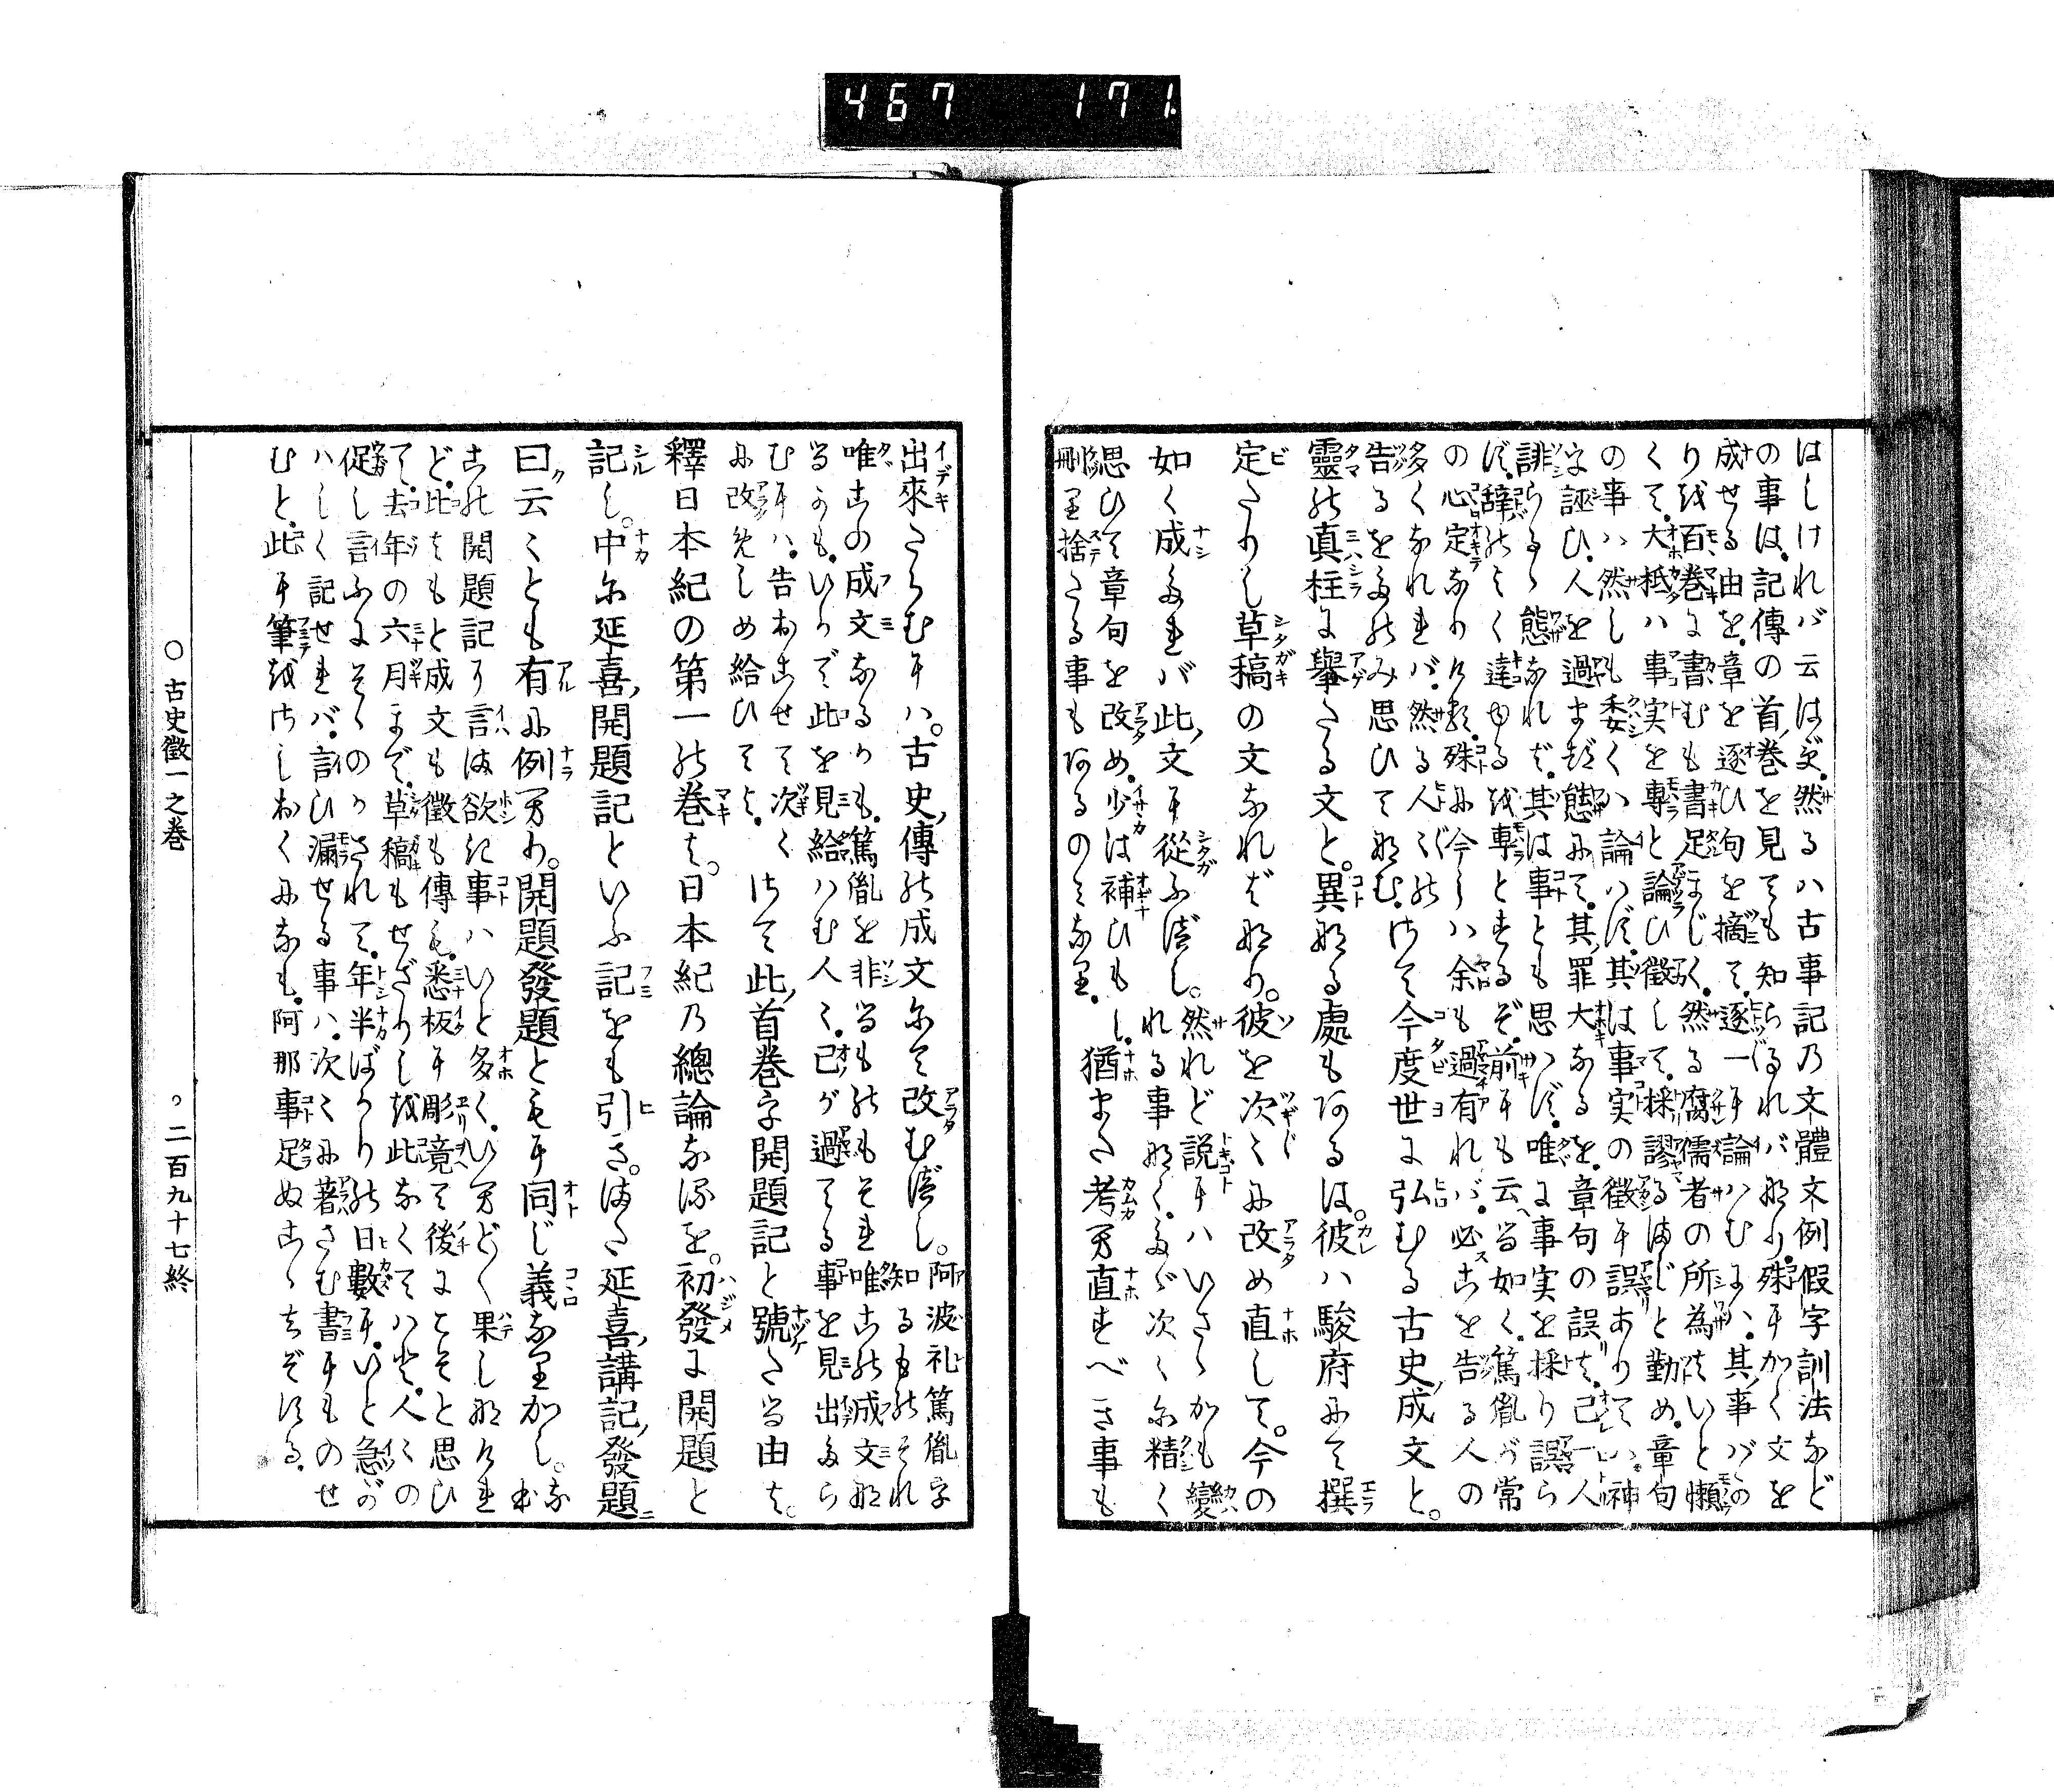 467 171
はしければ云はず。然るハ古事記乃文體文例假字訓法など
の事は。記傳の首巻を見ても知らるれバなり。殊にかく文を
成せる由を。章を逐ひ句を摘て。逐一に論ハむにハ。其事バかの
り或百巻に書むも書足まじく。然る腐儒者の所為はいと懶
くて。大柢ハ事実を專と論ひ徴して。採謬るまじと勤め。章句
の事ハ然しも委くハ論ハず。其は事実の徴に誤ありてハ。神
を誣ひ。人を過まず態にて。其罪大なるを。章句の誤は。己一人
誹らるゝ態なれば。其は事とも思ハず。唯に事実を採り誤ら
ず。辞のよく達ゆるを專とするぞ。前にも云へる如く。篤胤が常
の心定なりける。殊に今しハ余も過有れば。必こを告る人の
多くなれれバ。然る人々の
告るをたのみ思ひてなむ。さて今度世に弘むる古史成文と。
靈の真柱に擧たる文と。異なる處も有るは。彼ハ駿府にて撰
定たりし草稿の文なればなり。彼を次々に改め直して。今の
如く成たれバ此文に從ふべし。然れど説にハいさゝかも變
れる事なく。たゞ次々に精く
思ひて章句を改め。少は補ひもし。猶また考へ直すべき事も
刪り捨たる事もあるのみなり。
出來たらむにハ。古史傳の成文にて改むべし。阿波礼篤胤を
知るものそれ
唯この成文なるかも。篤胤を非るものもそれ唯この成文な
るかも。いかで此を見給ハむ人々。己が過てる事を見出たら
むにハ。告おこせて次々
に改めしめ給ひてよ。さて此首巻を開題記と號たる由は。
釋日本紀の第一の巻は。日本紀乃總論なるを。初發に開題と
記し。中に延喜開題記といふ記をも引き。また延喜講記發題ニ
曰ク云々とも有に例へり。開題發題ともに同じ義なりかし。
この開題記に言まほしき事ハいと多く。ひろく果しなけれ
ど。此はもと成文も徴も傳も。悉板に彫竟て後にこそと思ひ
て。去年の六月まで。草稿もせざりしを此なくてハと。人々の
促し言ふにそゝのかされて。年半ばかりの日數に。いと急が
ハしく記せれバ。言ひ漏せる事ハ。次々に著さむ書にものせ
むと。此に筆をさしおくになも。阿那事足ぬこゝちぞする。
○古史徴一之巻 ○二百九十七終